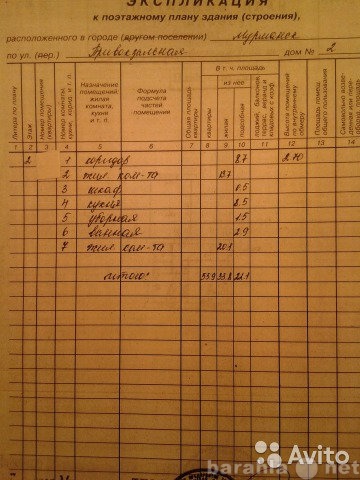 ЭКСПЛИКАЦИЯ
к поэтажному плану здания (строения),
расположенного в городе (другом поселении) Мурманск
по ул. (пер.) Привокзальная дом № 2
В т. ч. площадь
из нее
Литера по плану
Этаж
Номер помещения (квартиры)
Номер комнаты, кухни, корид. и т. п.
Назначение помещений: жилая комната, кухня и т. п.
Формула подсчета частей помещения
Общая площадь квартиры
квартиры
жилая
подсобная
лоджий, балконов, террас, веранд и кладовых с коэф.
Высота помещений по внутреннему обмеру
Площадь помещ. общего пользования
1 2 3 4 5 6 7 8 9 10 11 12 13 14
2 1 коридор 8.7 2.70
2 жил. ком-та 13.7
3 шкаф 0.5
4 кухня 8.5
5 уборная 1.5
6 ванная 2.9
7 жил. ком-та 20.1
итого: 55.9 33.8 22.1
barahla.net
Avito